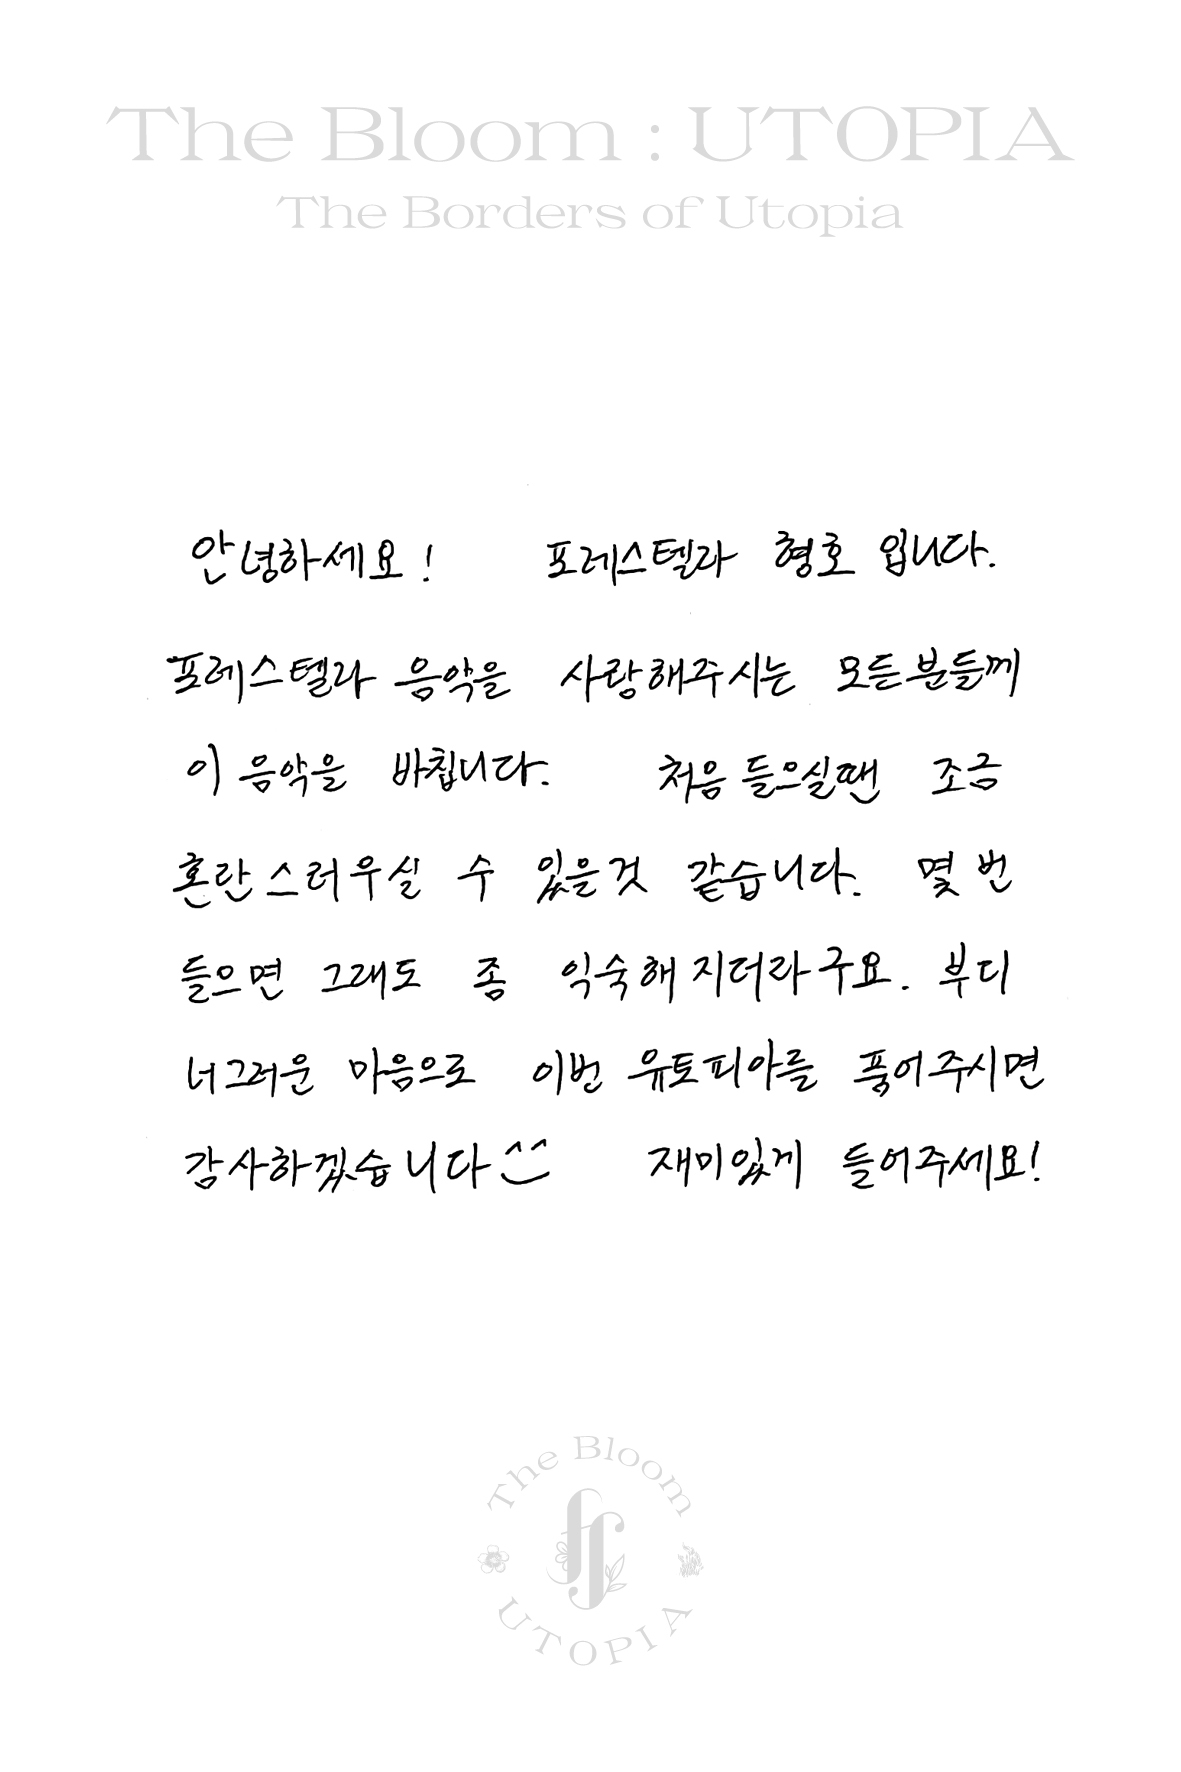 The Bloom : UTOPIA
The Borders of Utopia
안녕하세요! 포레스텔라 형호 입니다.
포레스텔라 음악을 사랑해주시는 모든분들께
이 음악을 바칩니다. 처음 들으실땐 조금
혼란스러우실 수 있을것 같습니다. 몇 번
들으면 그래도 좀 익숙해지더라구요. 부디
너그러운 마음으로 이번 유토피아를 품어주시면
감사하겠습니다^^ 재미있게 들어주세요!
The Bloom
UTOPIA